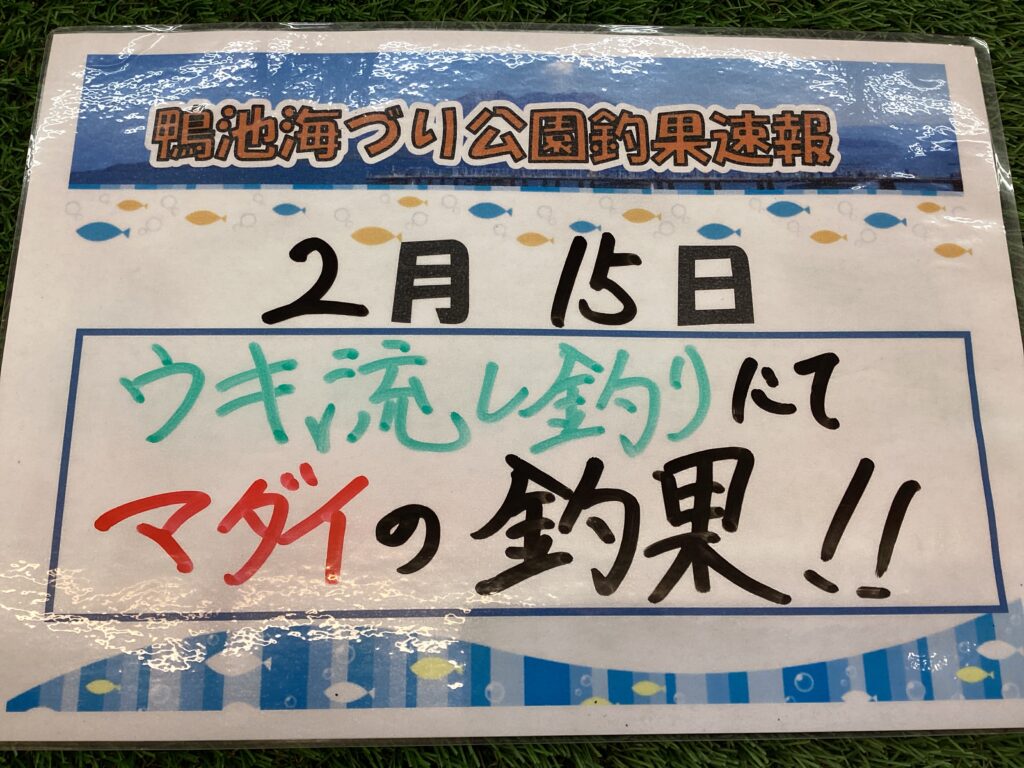 鴨池海づり公園釣果速報
2月15日
ウキ流し釣りにて
マダイの釣果!!